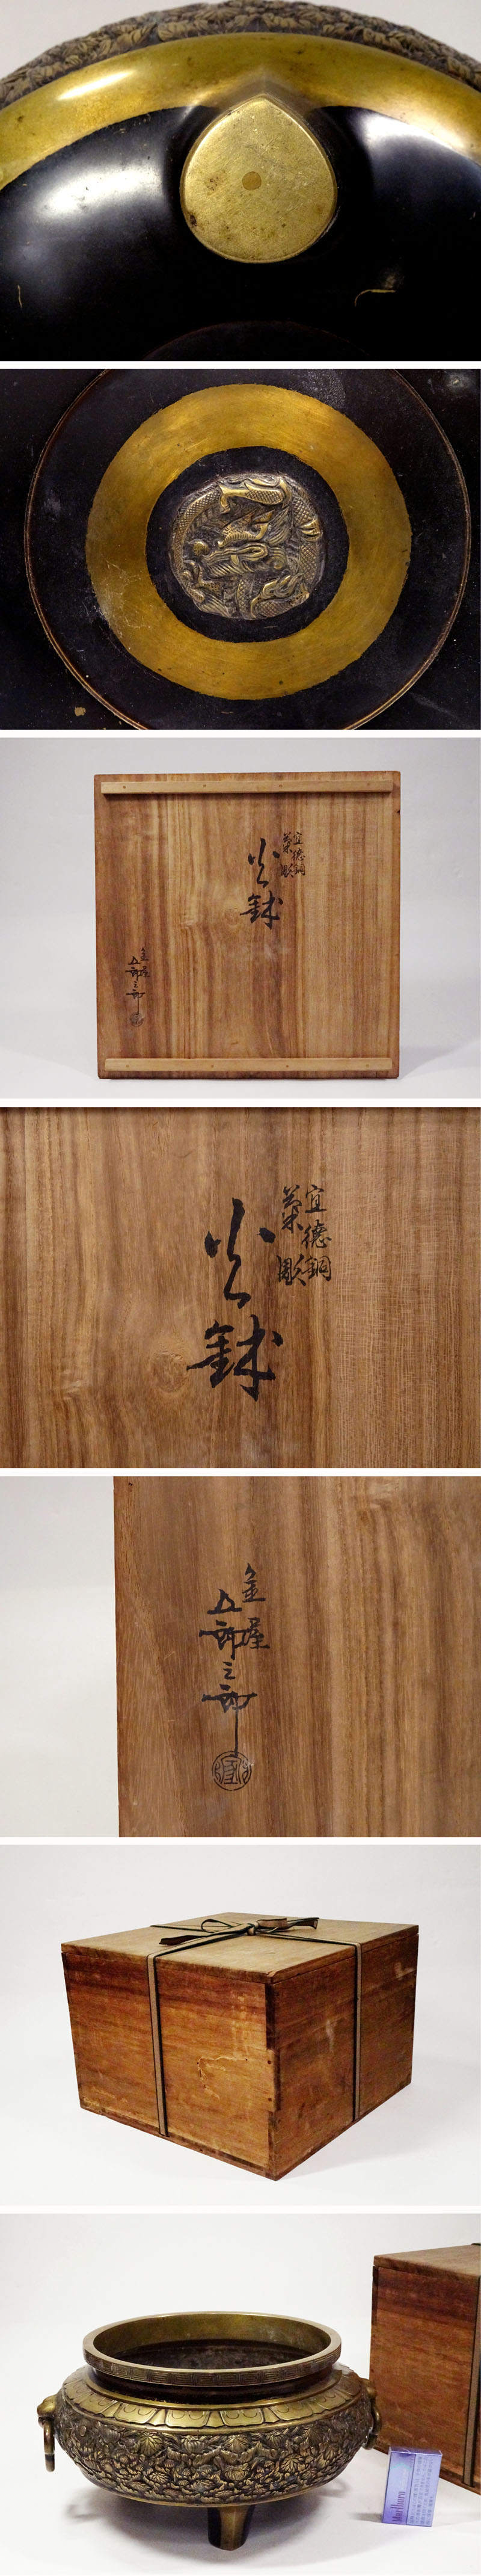 宣德銅
菊彫
火鉢
金屋
五郎三郎
宣德銅
菊彫
火鉢
金屋
五郎三郎
Marlboro